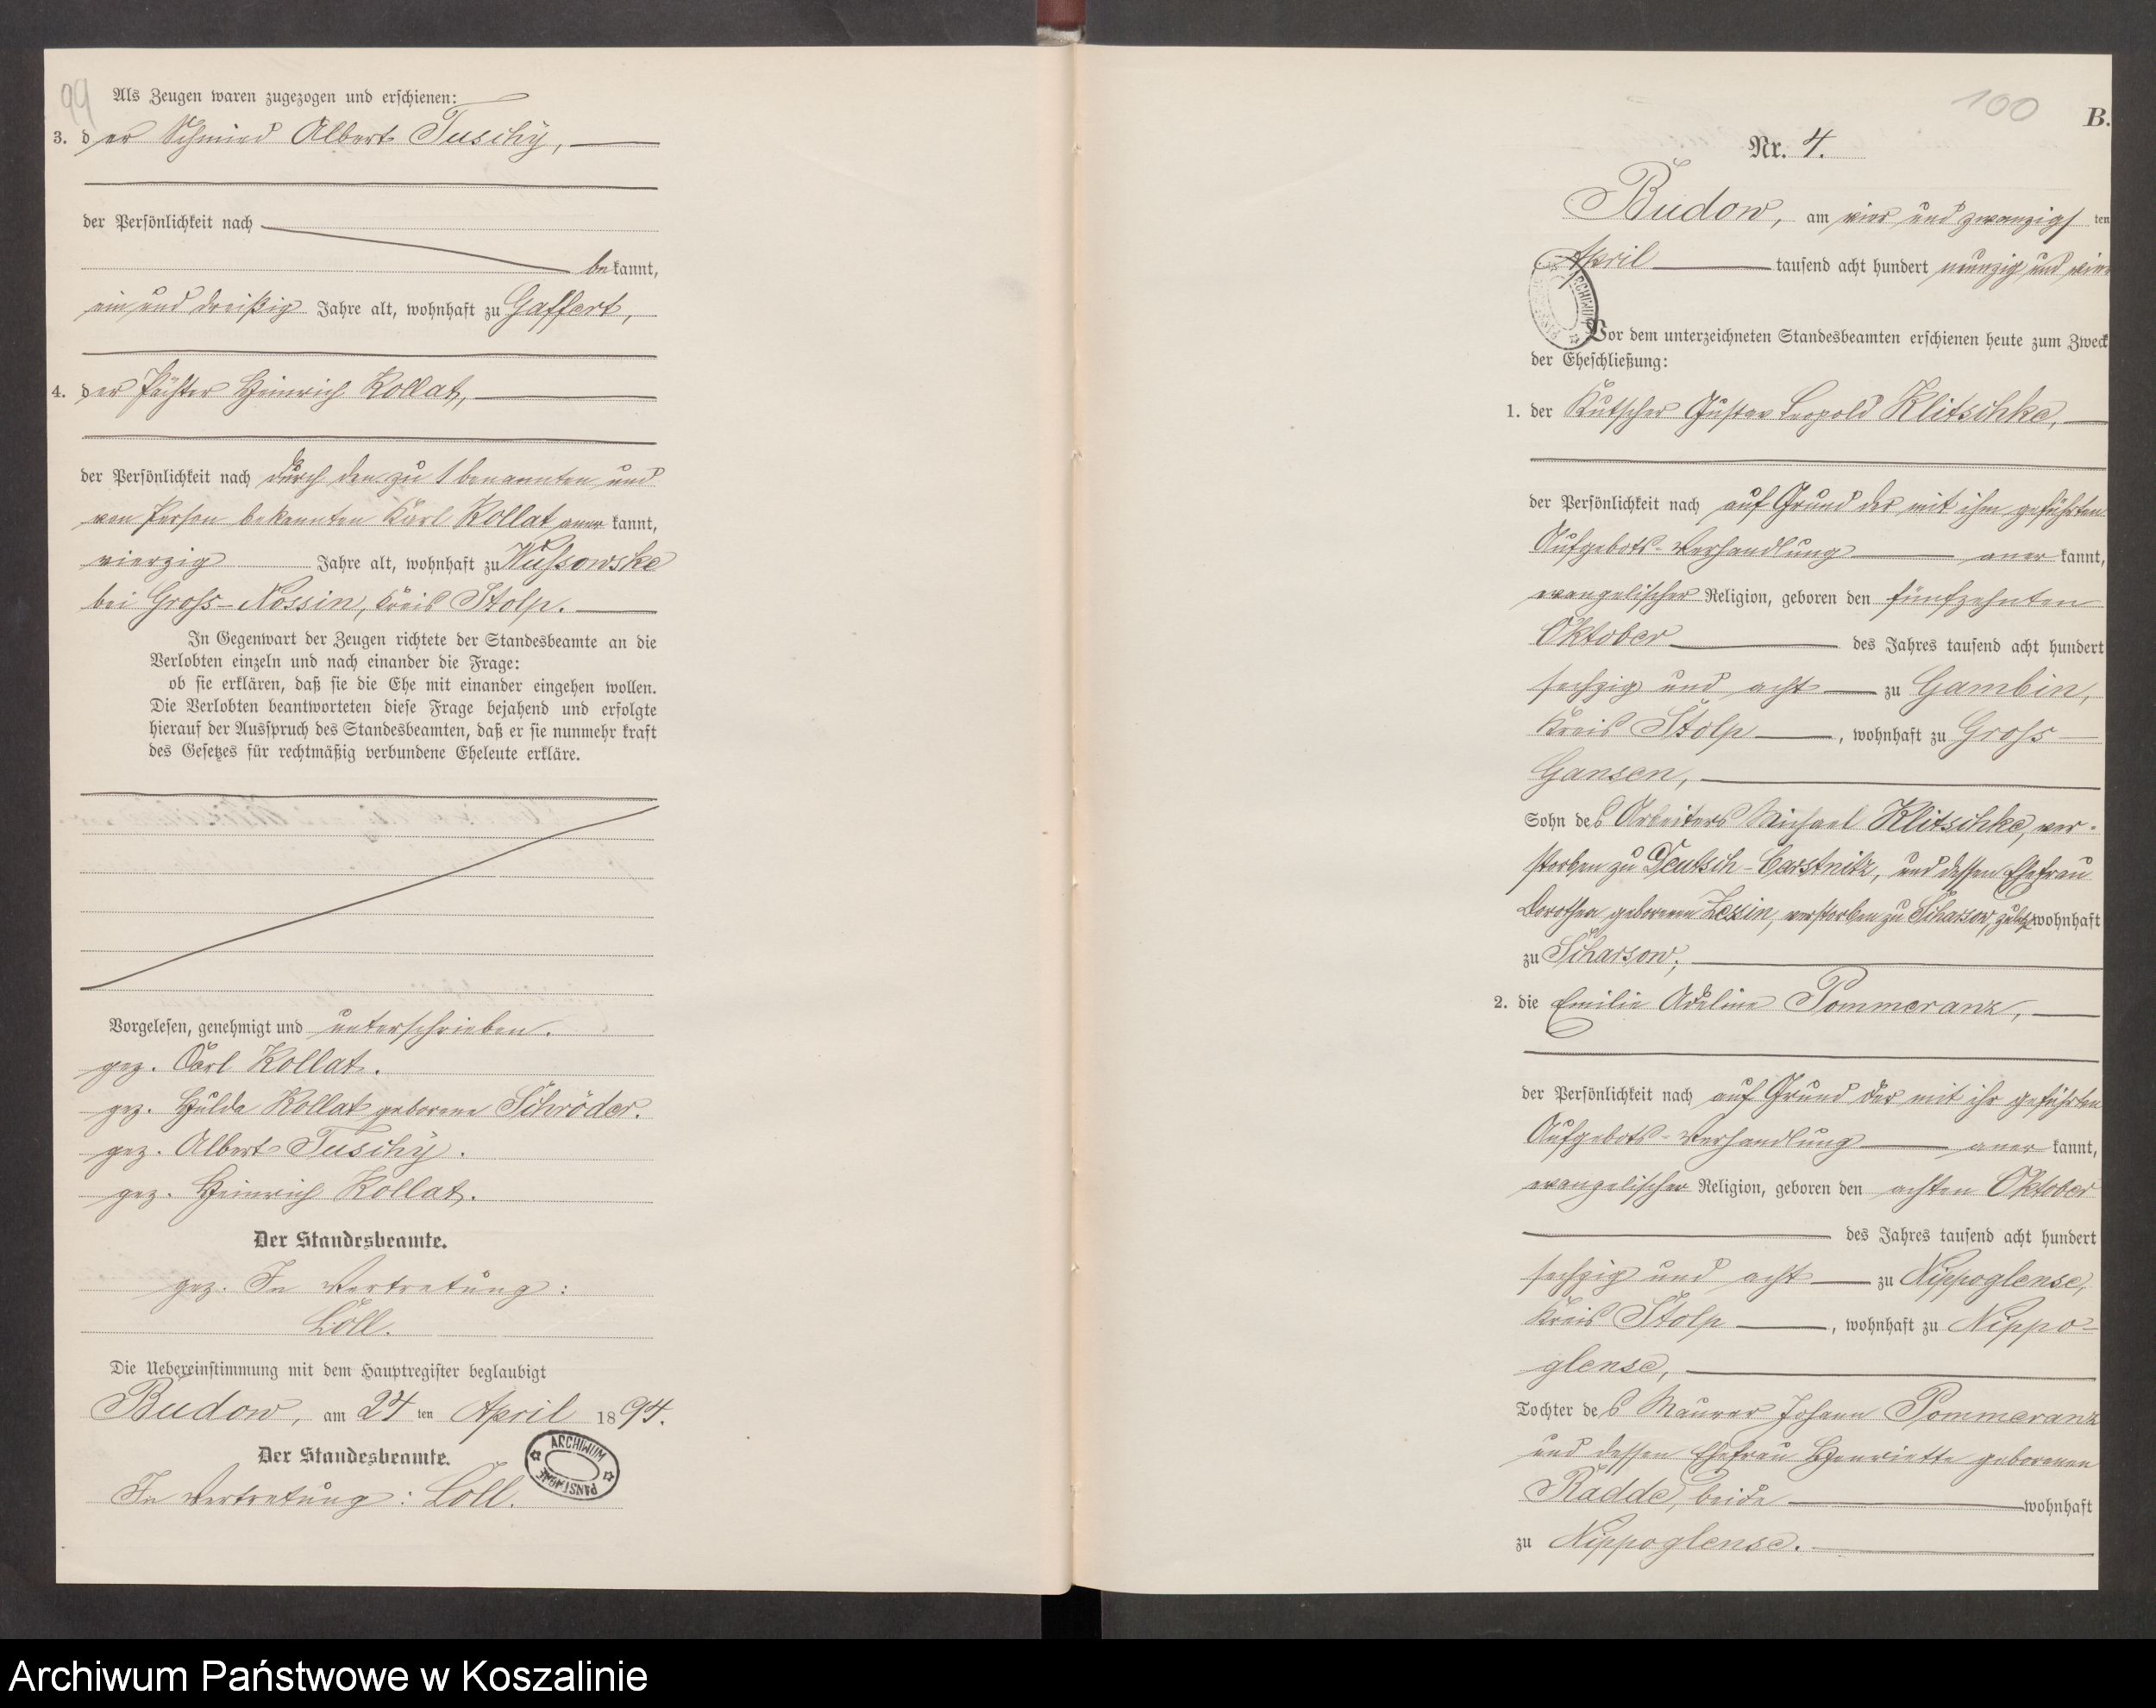 99
Als Zeugen waren zugezogen und erschienen:
3. der Schmied Albert Tuschy,
der Persönlichkeit nach
bekannt,
ein und dreißig Jahre alt, wohnhaft zu Gaffert,
4. der Pächter Heinrich Kollat,
der Persönlichkeit nach durch den zu 1 benannten und
von Person bekannten Karl Kollat anerkannt,
vierzig Jahre alt, wohnhaft zu Wussowske
bei Gross-Nossin, Kreis Stolp.
In Gegenwart der Zeugen richtete der Standesbeamte an die
Verlobten einzeln und nach einander die Frage:
ob sie erklären, daß sie die Ehe mit einander eingehen wollen.
Die Verlobten beantworteten diese Frage bejahend und erfolgte
hierauf der Ausspruch des Standesbeamten, daß er sie nunmehr kraft
des Gesetzes für rechtmäßig verbundene Eheleute erkläre.
Vorgelesen, genehmigt und unterschrieben.
gez. Carl Kollat.
gez. Hulda Kollat geborene Schröder.
gez. Albert Tuschy.
gez. Heinrich Kollat.
Der Standesbeamte.
gez. In Vertretung:
Löll.
Die Uebereinstimmung mit dem Hauptregister beglaubigt
Budow, am 24 ten April 1894.
Der Standesbeamte.
In Vertretung: Löll.
ARCHIWUM PAŃSTWOWE
100
B.
Nr. 4.
Budow, am vier und zwanzigsten
April tausend acht hundert neunzig und vier
Vor dem unterzeichneten Standesbeamten erschienen heute zum Zweck
der Eheschließung:
1. der Kutscher Gustav Leopold Klitschke,
der Persönlichkeit nach auf Grund der mit ihm geführten
Aufgebots-Verhandlung anerkannt,
evangelischer Religion, geboren den fünfzehnten
Oktober des Jahres tausend acht hundert
sechzig und acht zu Gambin,
Kreis Stolp, wohnhaft zu Gross-
Gansen,
Sohn des Arbeiters Michael Klitschke, ver-
storben zu Deutsch-Carstnitz, und dessen Ehefrau
Dorothea geborenen Zessin, verstorben zu Scharsow, zuletzt wohnhaft
zu Scharsow;
2. die Emilie Adeline Pommeranz,
der Persönlichkeit nach auf Grund der mit ihr geführten
Aufgebots-Verhandlung anerkannt,
evangelischer Religion, geboren den achten Oktober
des Jahres tausend acht hundert
sechzig und acht zu Nippoglense,
Kreis Stolp, wohnhaft zu Nippo-
glense,
Tochter des Maurer Johann Pommeranz
und dessen Ehefrau Henriette geborenen
Radde, beide wohnhaft
zu Nippoglense.
Archiwum Państwowe w Koszalinie